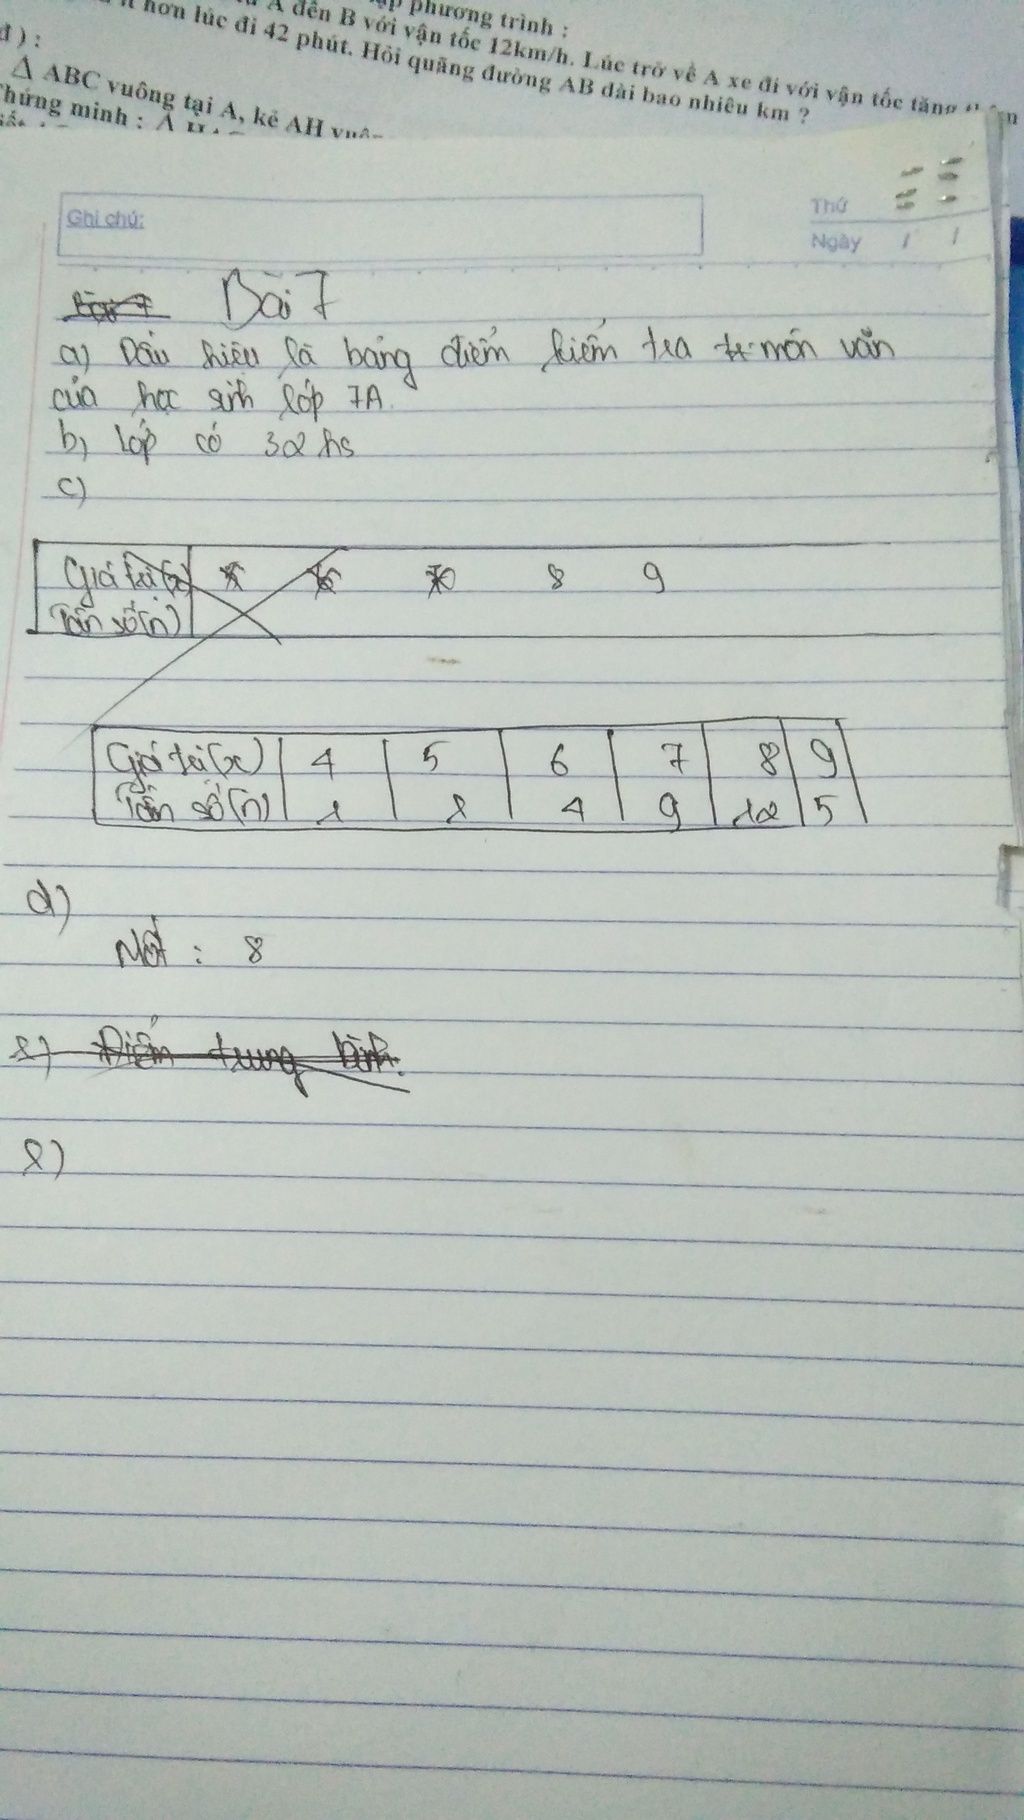 ập phương trình :
A đến B với vận tốc 12km/h. Lúc trở về A xe đi với vận tốc tăng
hơn lúc đi 42 phút. Hỏi quãng đường AB dài bao nhiêu km ?
đ ) :
Δ ABC vuông tại A, kẻ AH
Chứng minh :
Ghi chú:
Thứ
Ngày / /
Bài 7
Bài 7
a) Dấu hiệu là bảng điểm kiểm tra môn văn
của học sinh lớp 7A.
b) lớp có 32 hs
c)
Giá trị (x) 8 9
Tần số (n)
Giá trị (x) 4 5 6 7 8 9
Tần số (n) 1 1 4 9 12 5
d)
Mốt : 8
e) Điểm trung bình.
e)